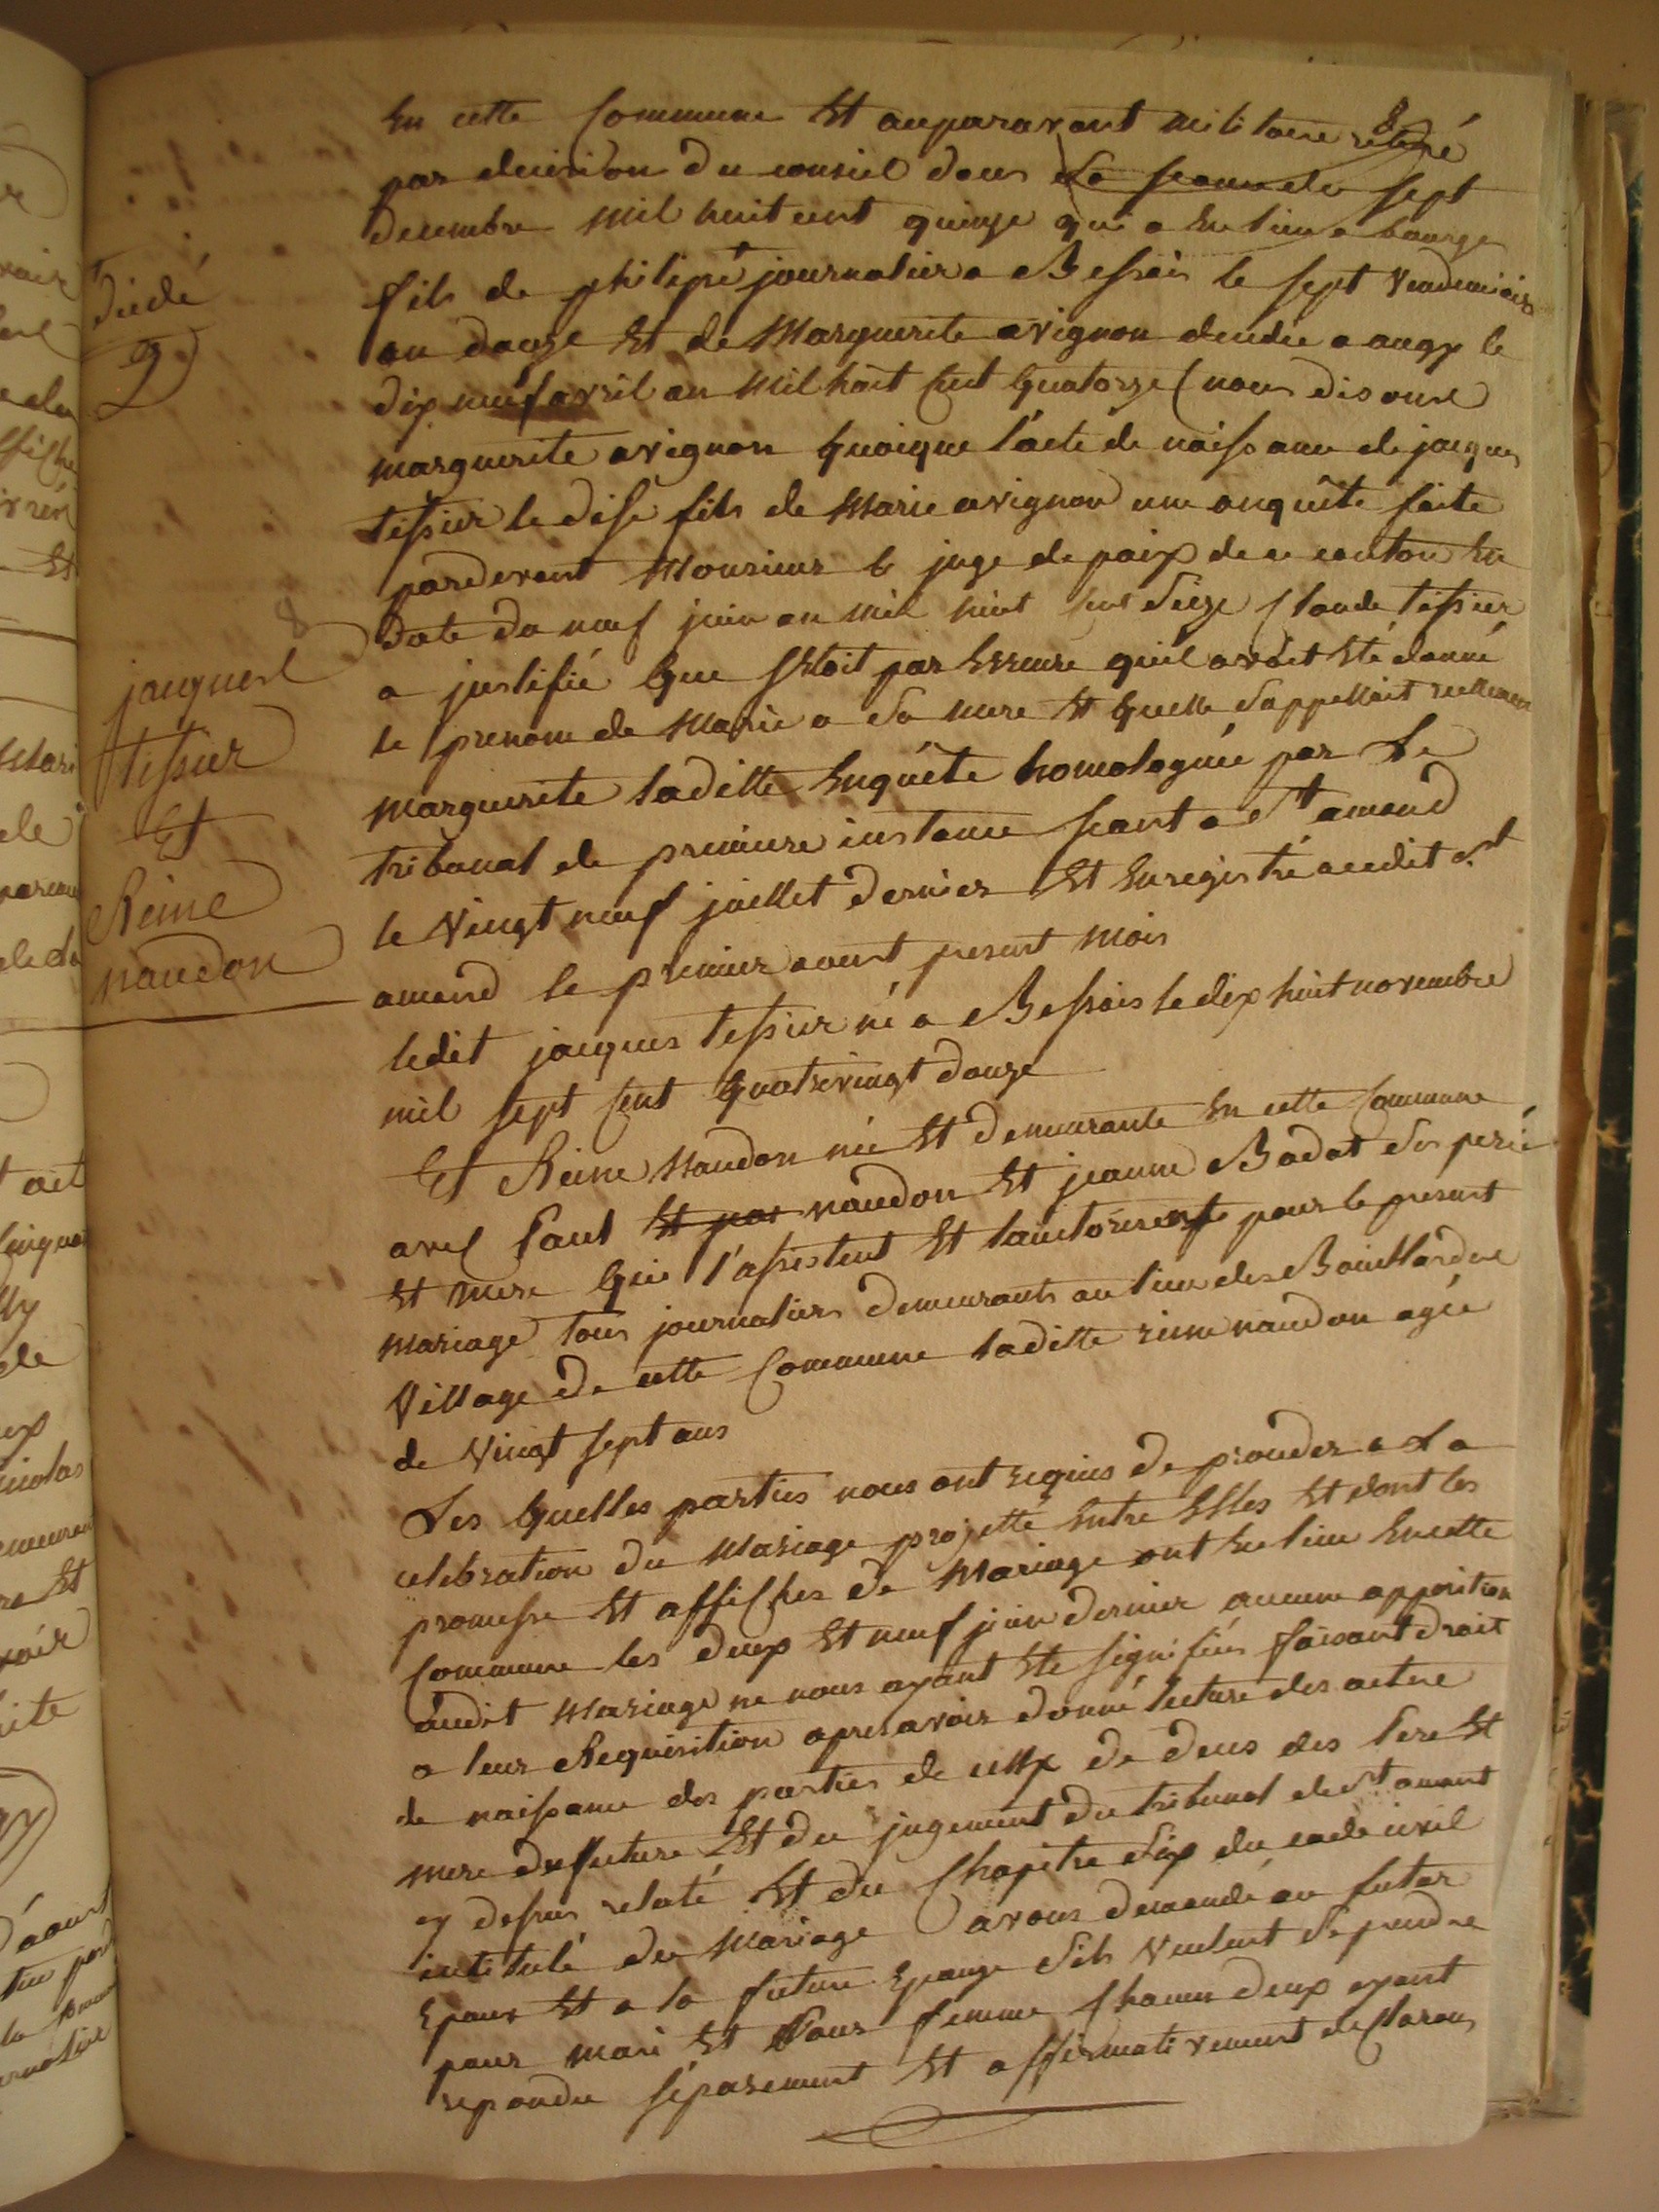 8
En cette Commune Et auparavant militaire retiré
par decision du conseil dans la seance du sept
decembre mil huit cent quinze qui a Eu lieu a bourge
fils de philipe journalier a Bessais le sept Vendemiaire
an douze Et de Marguerite avignon
dix neuf avril an mil huit Cent Quatorze (nous disons
marguerite avignon Quoique l'acte de naissance de jacques
tessier le dise fils de Marie avignon une enquête faite
pardevant Monsieur le juge de paix de ce canton En
Date du neuf juin an mil huit Cent Seize Claude tessier
a justifié Que C'Etoit par Erreure qu'il avoit Eté donné
le prenom de Marie a Sa mere Et Quelle S'appellait reellement
marguerite laditte Enquête homologuée par Le
tribunal de premiere instance seant a St amand
le Vingt neuf juillet Dernier Et Enregistré audit St
amand le premier aout present mois
ledit jacques tessier né a Bessais le dix huit novembre
mil sept Cent Quatrevingt Douze
Et Reine Naudon née Et Demeurante En cette Commune
avec Paul Et par naudon Et jeanne Badat Ses peré
Et mere Qui l'assistent Et l'autorisent pour le present
mariage tous journaliers Demeurants au lieu des
Village de cette Commune laditte reine naudon agée
de Vingt sept ans
Les Quelles parties nous ont requis De proceder a La
celebration du Mariage projetté Entre Elles Et dont les
promesse Et affiches de Mariage ont Eu lieu En cette
Commune les Deux Et neuf juin dernier aucune opposition
audit Mariage ne nous ayant Eté signifiée faisant droit
a leur Requisition apres avoir Donné lecture des actes
de naissance des parties de ceux De deces des Pere Et
mere du future Et du jugement du tribunal de St amant
cy dessus relaté Et du Chapitre Six du code civil
intitulé du Mariage avons demandé au futur
Epoux Et a la future Epouze S'ils Veulent Se prendre
pour mari Et Pour femme Chacun deux ayant
repondu séparement Et affirmativement declarons
9
8
jacques
tessier
Et
Reine
naudon